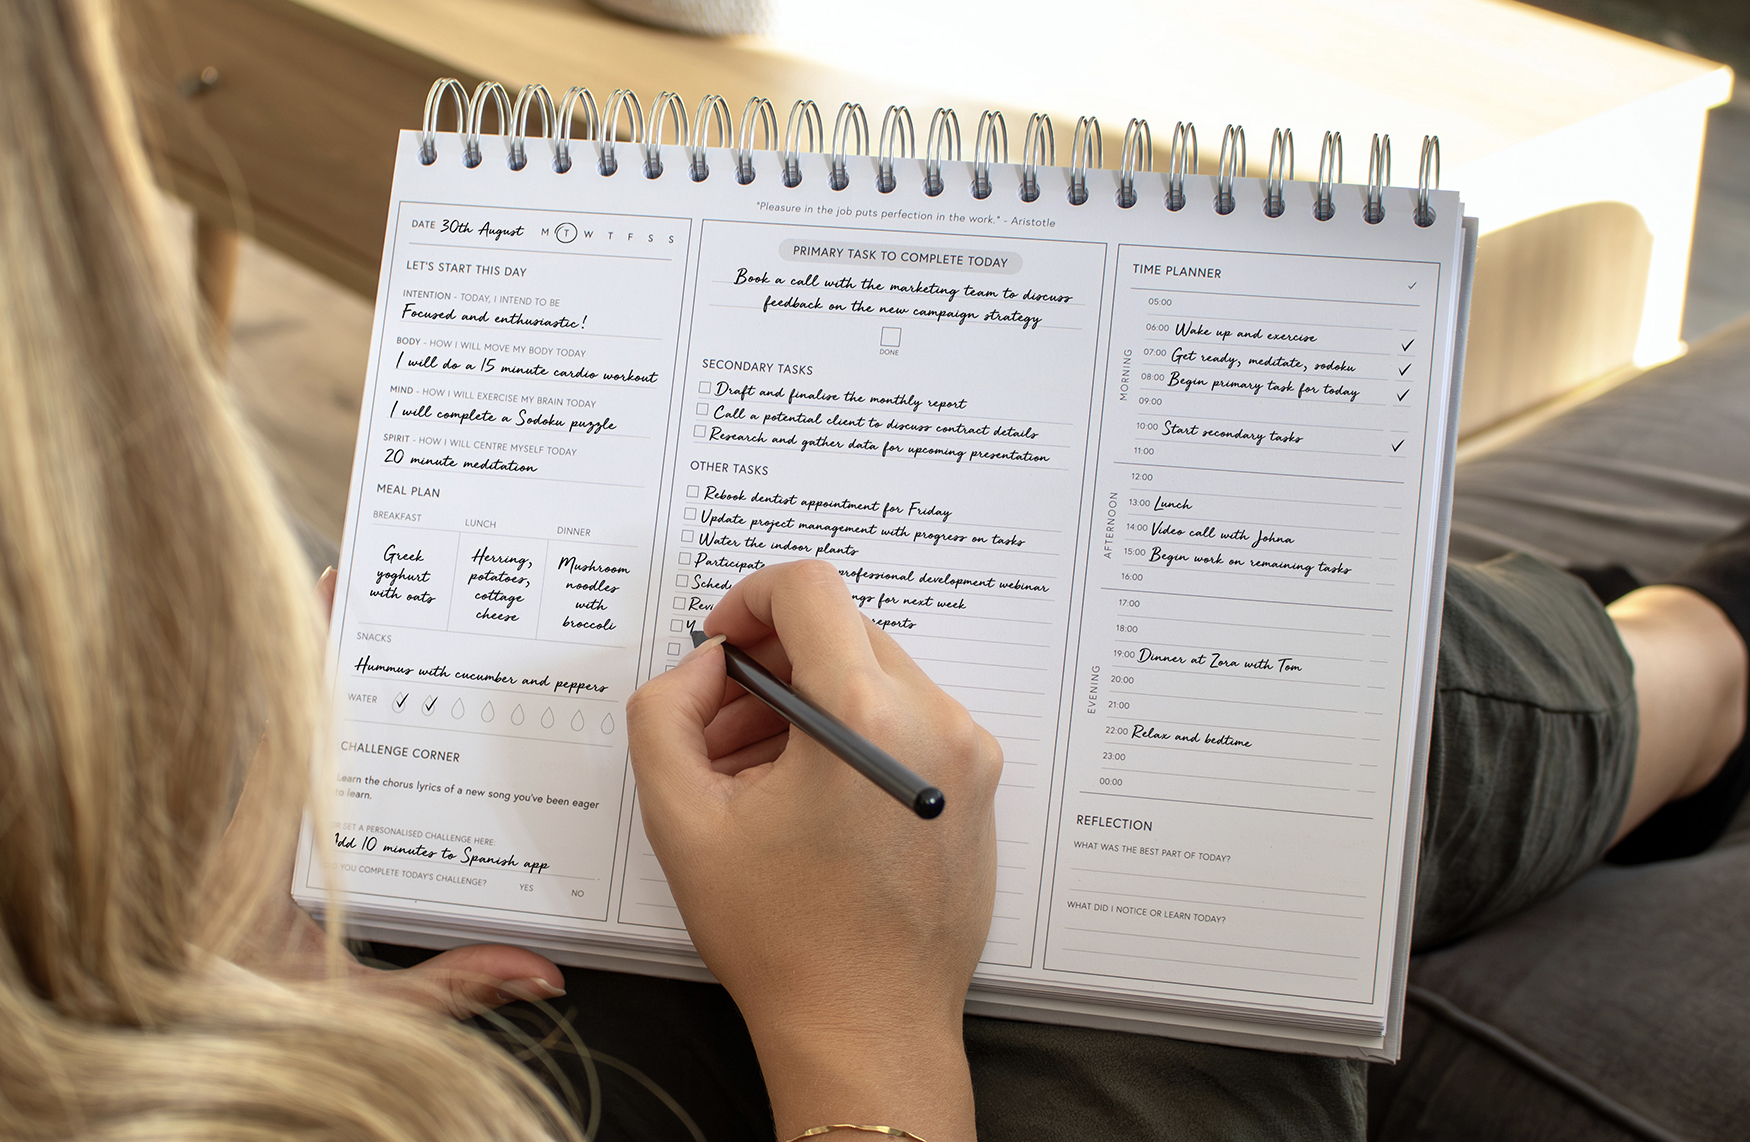 "Pleasure in the job puts perfection in the work." - Aristotle
DATE 30th August M T W T F S S
LET'S START THIS DAY
INTENTION - TODAY, I INTEND TO BE
Focused and enthusiastic!
BODY - HOW I WILL MOVE MY BODY TODAY
I will do a 15 minute cardio workout
MIND - HOW I WILL EXERCISE MY BRAIN TODAY
I will complete a Sodoku puzzle
SPIRIT - HOW I WILL CENTRE MYSELF TODAY
20 minute meditation
MEAL PLAN
BREAKFAST
Greek
yoghurt
with oats
LUNCH
Herring,
potatoes,
cottage
cheese
DINNER
Mushroom
noodles
with
broccoli
SNACKS
Hummus with cucumber and peppers
WATER
CHALLENGE CORNER
Learn the chorus lyrics of a new song you've been eager
to learn.
SET A PERSONALISED CHALLENGE HERE:
Add 10 minutes to Spanish app
YOU COMPLETE TODAY'S CHALLENGE? YES NO
PRIMARY TASK TO COMPLETE TODAY
Book a call with the marketing team to discuss
feedback on the new campaign strategy
DONE
SECONDARY TASKS
Draft and finalise the monthly report
Call a potential client to discuss contract details
Research and gather data for upcoming presentation
OTHER TASKS
Rebook dentist appointment for Friday
Update project management with progress on tasks
Water the indoor plants
Participat professional development webinar
Sched ngs for next week
Revi reports
TIME PLANNER
MORNING
05:00
06:00 Wake up and exercise
07:00 Get ready, meditate, sodoku
08:00 Begin primary task for today
09:00
10:00 Start secondary tasks
11:00
AFTERNOON
12:00
13:00 Lunch
14:00 Video call with Johna
15:00 Begin work on remaining tasks
16:00
EVENING
17:00
18:00
19:00 Dinner at Zora with Tom
20:00
21:00
22:00 Relax and bedtime
23:00
00:00
REFLECTION
WHAT WAS THE BEST PART OF TODAY?
WHAT DID I NOTICE OR LEARN TODAY?